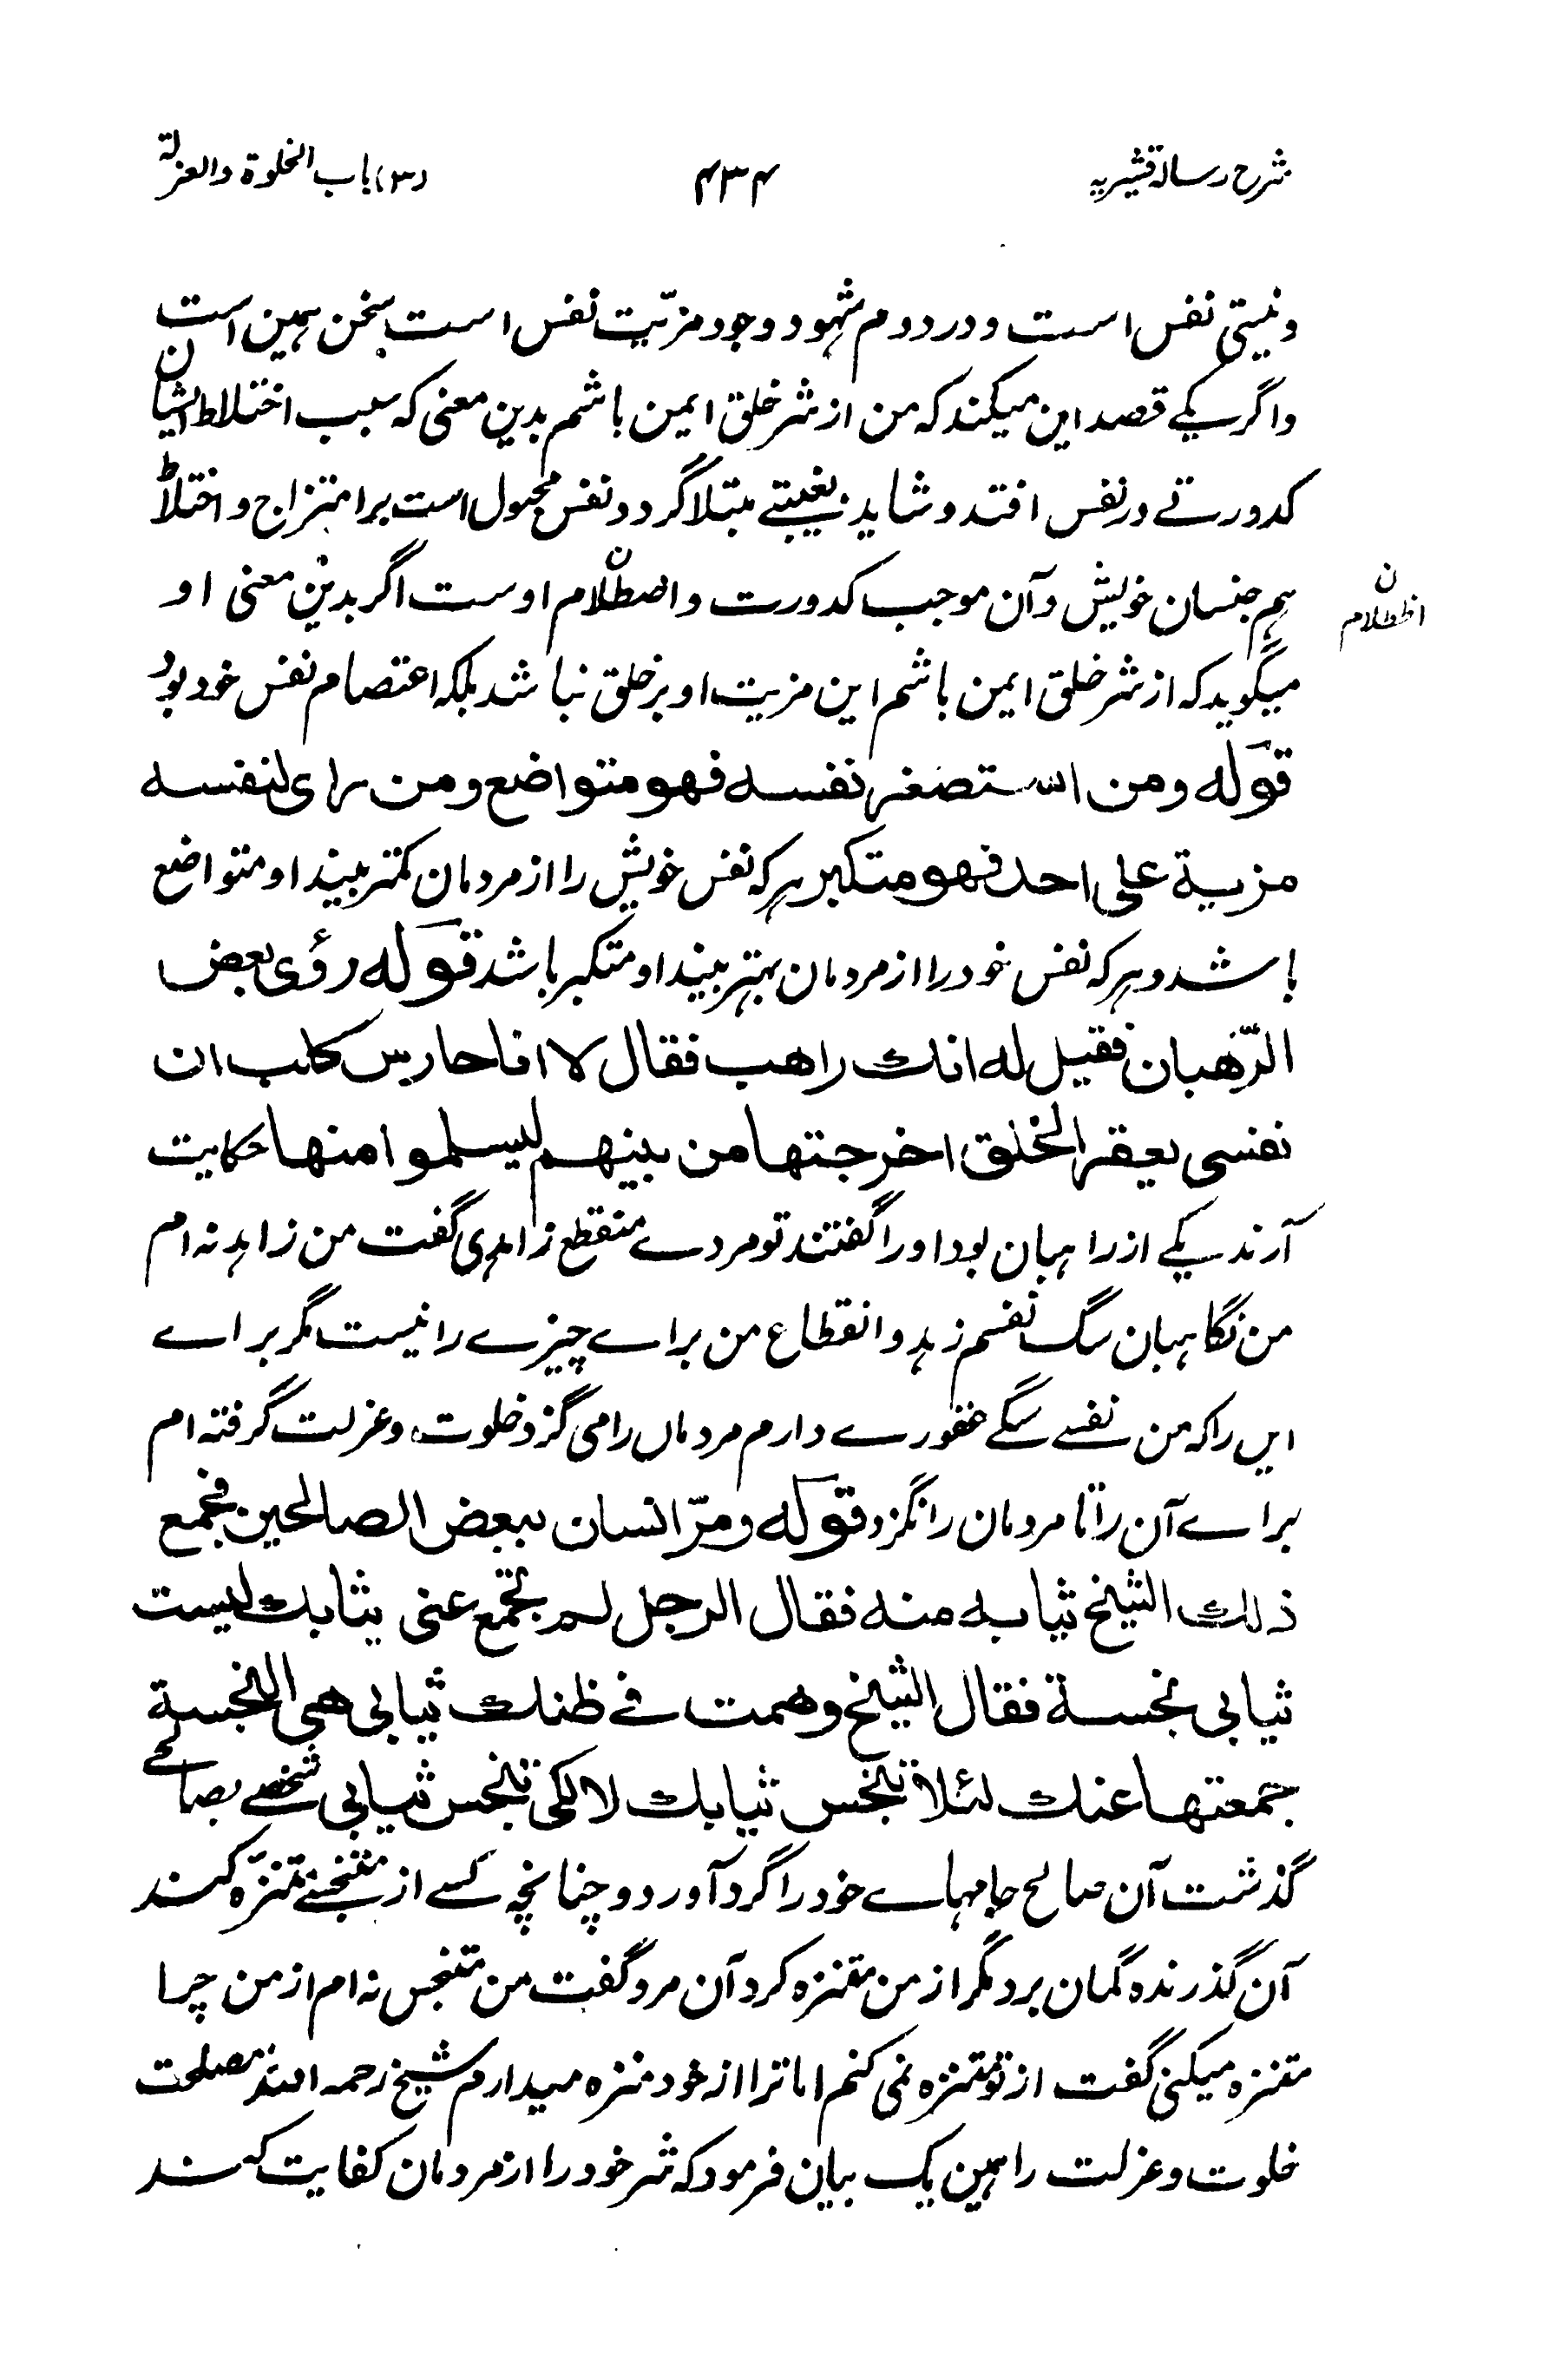 شرح رسالہ قشیریہ ۴۳۴ (۳) باب الخلوة والعزلة
ونیستی نفس است و در دوم شہود وجود مزیّت نفس است سخن ہمین است
واگر یکے قصد این میکند کہ من از شر خلق ایمن باشم بدین معنی کہ سبب اختلاط ایشان
کدورتے در نفس افتد و شاید بغیبتے مبتلا گردد و نفس مجبول است بر امتزاج و اختلاط
ہم جنسان خویش و آن موجب کدورت و اصطلام اوست اگر بدین معنی او
ن
اظطلام
میگوید کہ از شر خلق ایمن باشم این مزیت او بر خلق نباشد بلکہ اعتصام نفس خود بود
قوله ومن استصغر نفسه فهو متواضع ومن رای لنفسه
مزیة علی احد فهو متکبر ہر کہ نفس خویش را از مردمان کمتر بیند او متواضع
باشد و ہر کہ نفس خود را از مردمان بہتر بیند او متکبر باشد قوله رؤی بعض
الرّهبان فقیل له انك راهب فقال لا انا حارس کلب ان
نفسی یعقر الخلق اخرجتها من بینهم لیسلموا منها حکایت
آرند یکے از راہبان بود او را گفتند تو مردے منقطع زاہدی گفت من زاہد نہ ام
من نگاہبان سگ نفسم زہد و انقطاع من براے چیزے را نیست مگر براے
ایں را کہ من نفسے سگے عقورے دارم مردماں را می گزد خلوت و عزلت گرفتہ ام
براے آن را تا مردمان را نگزد قوله ومرّ انسان ببعض الصالحین فجمع
ذلك الشیخ ثیابه منه فقال الرجل لم تجمع عنی ثیابك لیست
ثیابی نجسة فقال الشیخ وهمت فے ظنك ثیابی هی النجسة
جمعتها عنك لئلا تنجس ثیابك لا لکی تنجس ثیابی شخصے بصالحے
گذشت آن صالح جامہاے خود را گرد آورد و چنانچہ کسے از متنجسے تنزّہ کند
آن گذرندہ گمان برد مگر از من متنزہ کرد آن مرد گفت من متنجس نہ ام از من چرا
متنزہ میکنی گفت از تو متنزہ نمی کنم اما ترا از خود منزہ میدارم شیخ رحمہ اللہ مصلحت
خلوت و عزلت را ہمین یک بیان فرمود کہ شر خود را از مردمان کفایت کند